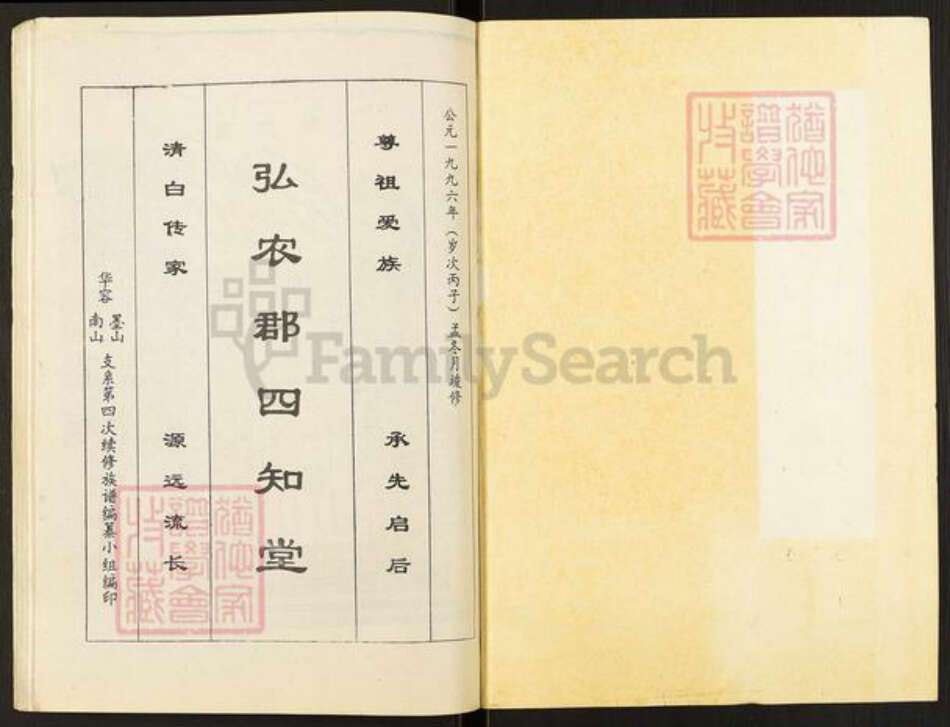 公元一九九六年（岁次丙子）孟冬月竣修
尊祖爱族 承先启后
弘农郡四知堂
清白传家 源远流长
华容 墨山 南山 支系第四次续修族谱编纂小组编印
犹他家
谱学会
收藏
犹他家
谱学会
收藏
FamilySearch